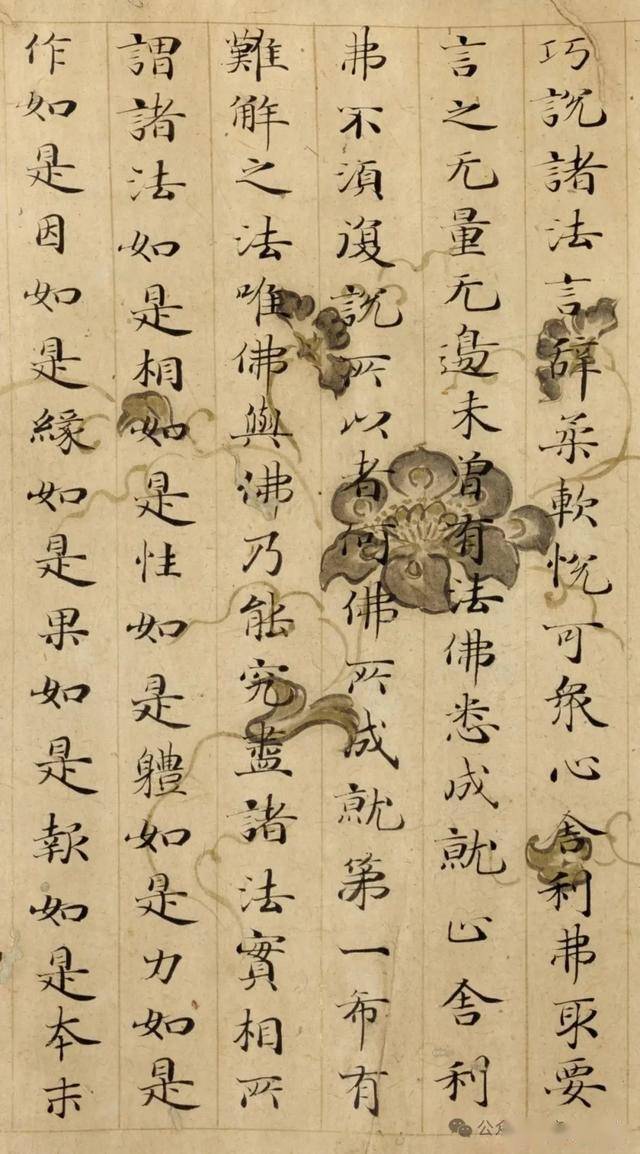 巧説諸法言辭柔軟悅可衆心舍利弗取要
言之无量无邊未曾有法佛悉成就止舍利
弗不湏復説所以者何佛所成就第一希有
難解之法唯佛與佛乃能究盡諸法實相所
謂諸法如是相如是性如是體如是力如是
作如是因如是緣如是果如是報如是本末
公众